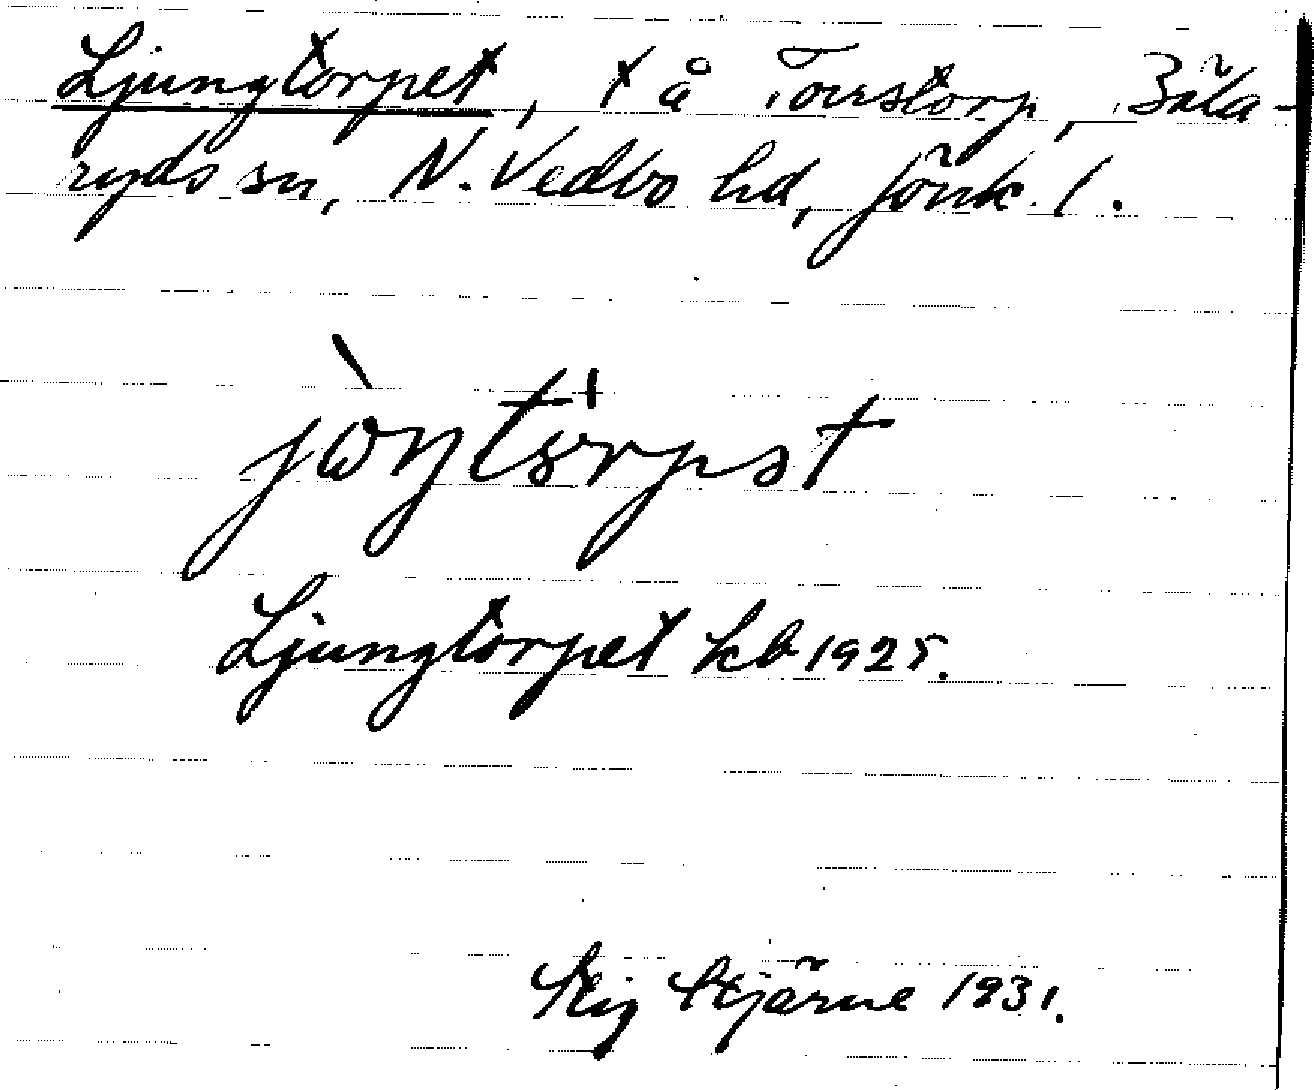 Ljungtorpet, t å Torstorp, Bäla-
ryds sn, N. Vedbo hd, Jönk. l.
Ljungtorpet kb 1925.
Stig Stjärne 1931.